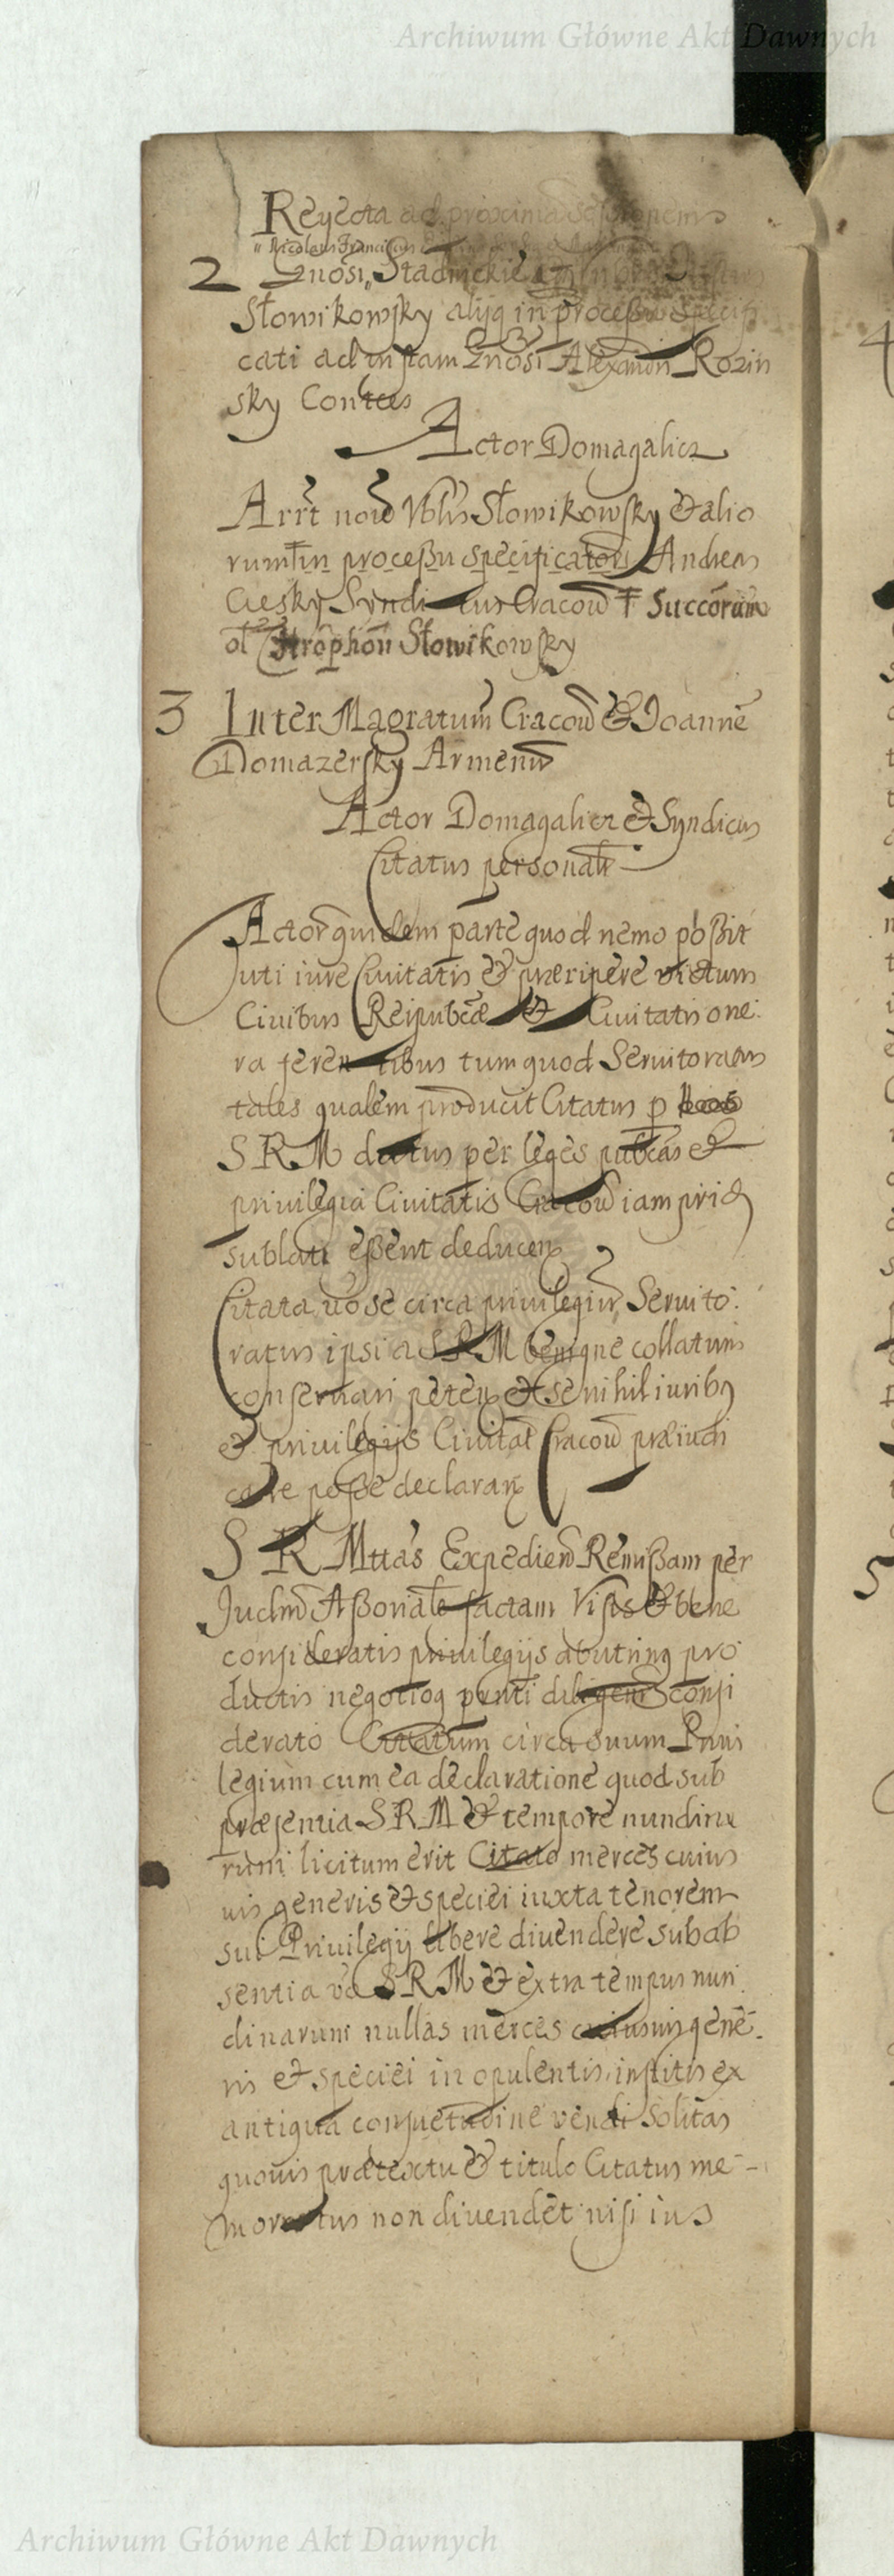 Archiwum Główne Akt Dawnych
Reyecta ad proximã Sessionem
2 Gnosi Stadnickie
Słowikowsky alijq in processu specifi
cati ad instam Gnosi Alexandri Rozin
sky Conttes
Actor Domagalicz
Arrt noie Nblis Słowikowsky & alio
rum in processu specificatorũ Andreas
Ciesky Syndicus Cracow Ŧ Succorum
ol Słowikowsky
3 Inter Magratum Cracow & Joanne
Domazersky Armenũ
Actor Domagalicz & Syndicus
Citatus personalr
Actor quidem parte quod nemo poßit
uti iure Ciuitatis & præripere victum
Ciuibus Reipubcæ et Ciuitatis one:
ra ferentibus tum quod Seruitoratus
tales qualem producit Citatus p
S R M datus per leges pubcas et
priuilegia Ciuitatis Cracow iam prid
sublati eßent deducen
Citata vo se circa priuilegiũ Seruito:
ratus ipsi a S R M benigne collatum
conseruari peten & se nihil iuribq
& priuilegijs Ciuitat Cracow præiudi
care poße declaran
S R Mttas Expedien Remißam per
Judm Aßoriale factam Visis & bene
consideratis priuilegijs abutrinq pro
ductis negotioq pnti diligenr consi
derato Citatum circa suum Priui
legium cum ea declaratione quod sub
præsentia S R M & tempore nundina
rum licitum erit Citato merces cuius
uis generis & speciei iuxta tenorem
sui Priuilegij libere diuendere sub ab
sentia vo S R M & extra tempus nun
dinarum nullas merces cuiusuis gene-
ris et speciei in opulentis institis ex
antiqua consuetudine vendi solitas
quouis prætextu & titulo Citatus me-
moratus non diuendet nisi ius
Archiwum Główne Akt Dawnych